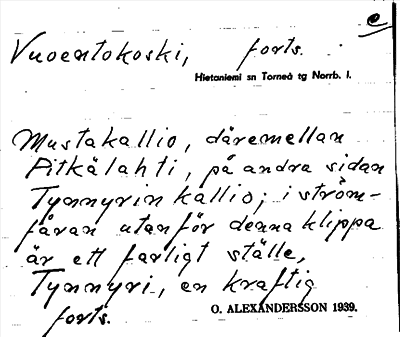 Vuoentokoski, forts.
Hietaniemi sn Torneå tg Norrb. l.
Mustakallio, däremellan
Pitkälahti, på andra sidan
Tynnyrin kallio; i ström-
fåran utanför denna klippa
är ett farligt ställe,
Tynnyri, en kraftig
forts.
O. ALEXANDERSSON 1939.